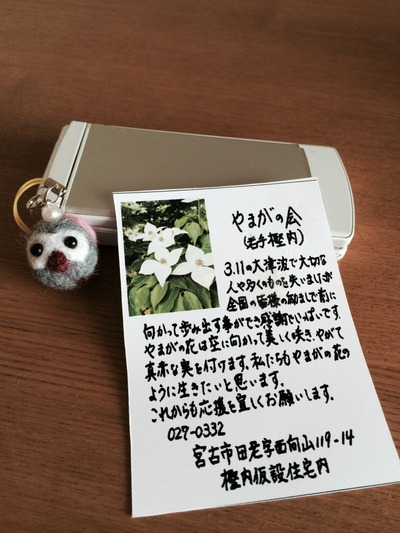 やまがの会
(岩手樫内)
3.11の大津波で大切な
人や多くのものを失いましたが
全国の皆様の励ましで前に
向かって歩み出す事ができ感謝でいっぱいです。
やまがの花は空に向かって美しく咲き、やがて
真赤な実を付けます。私たちもやまがの花の
ように生きたいと思います。
これからも応援を宜しくお願いします。
027-0332
宮古市田老字西向山119-14
樫内仮設住宅内